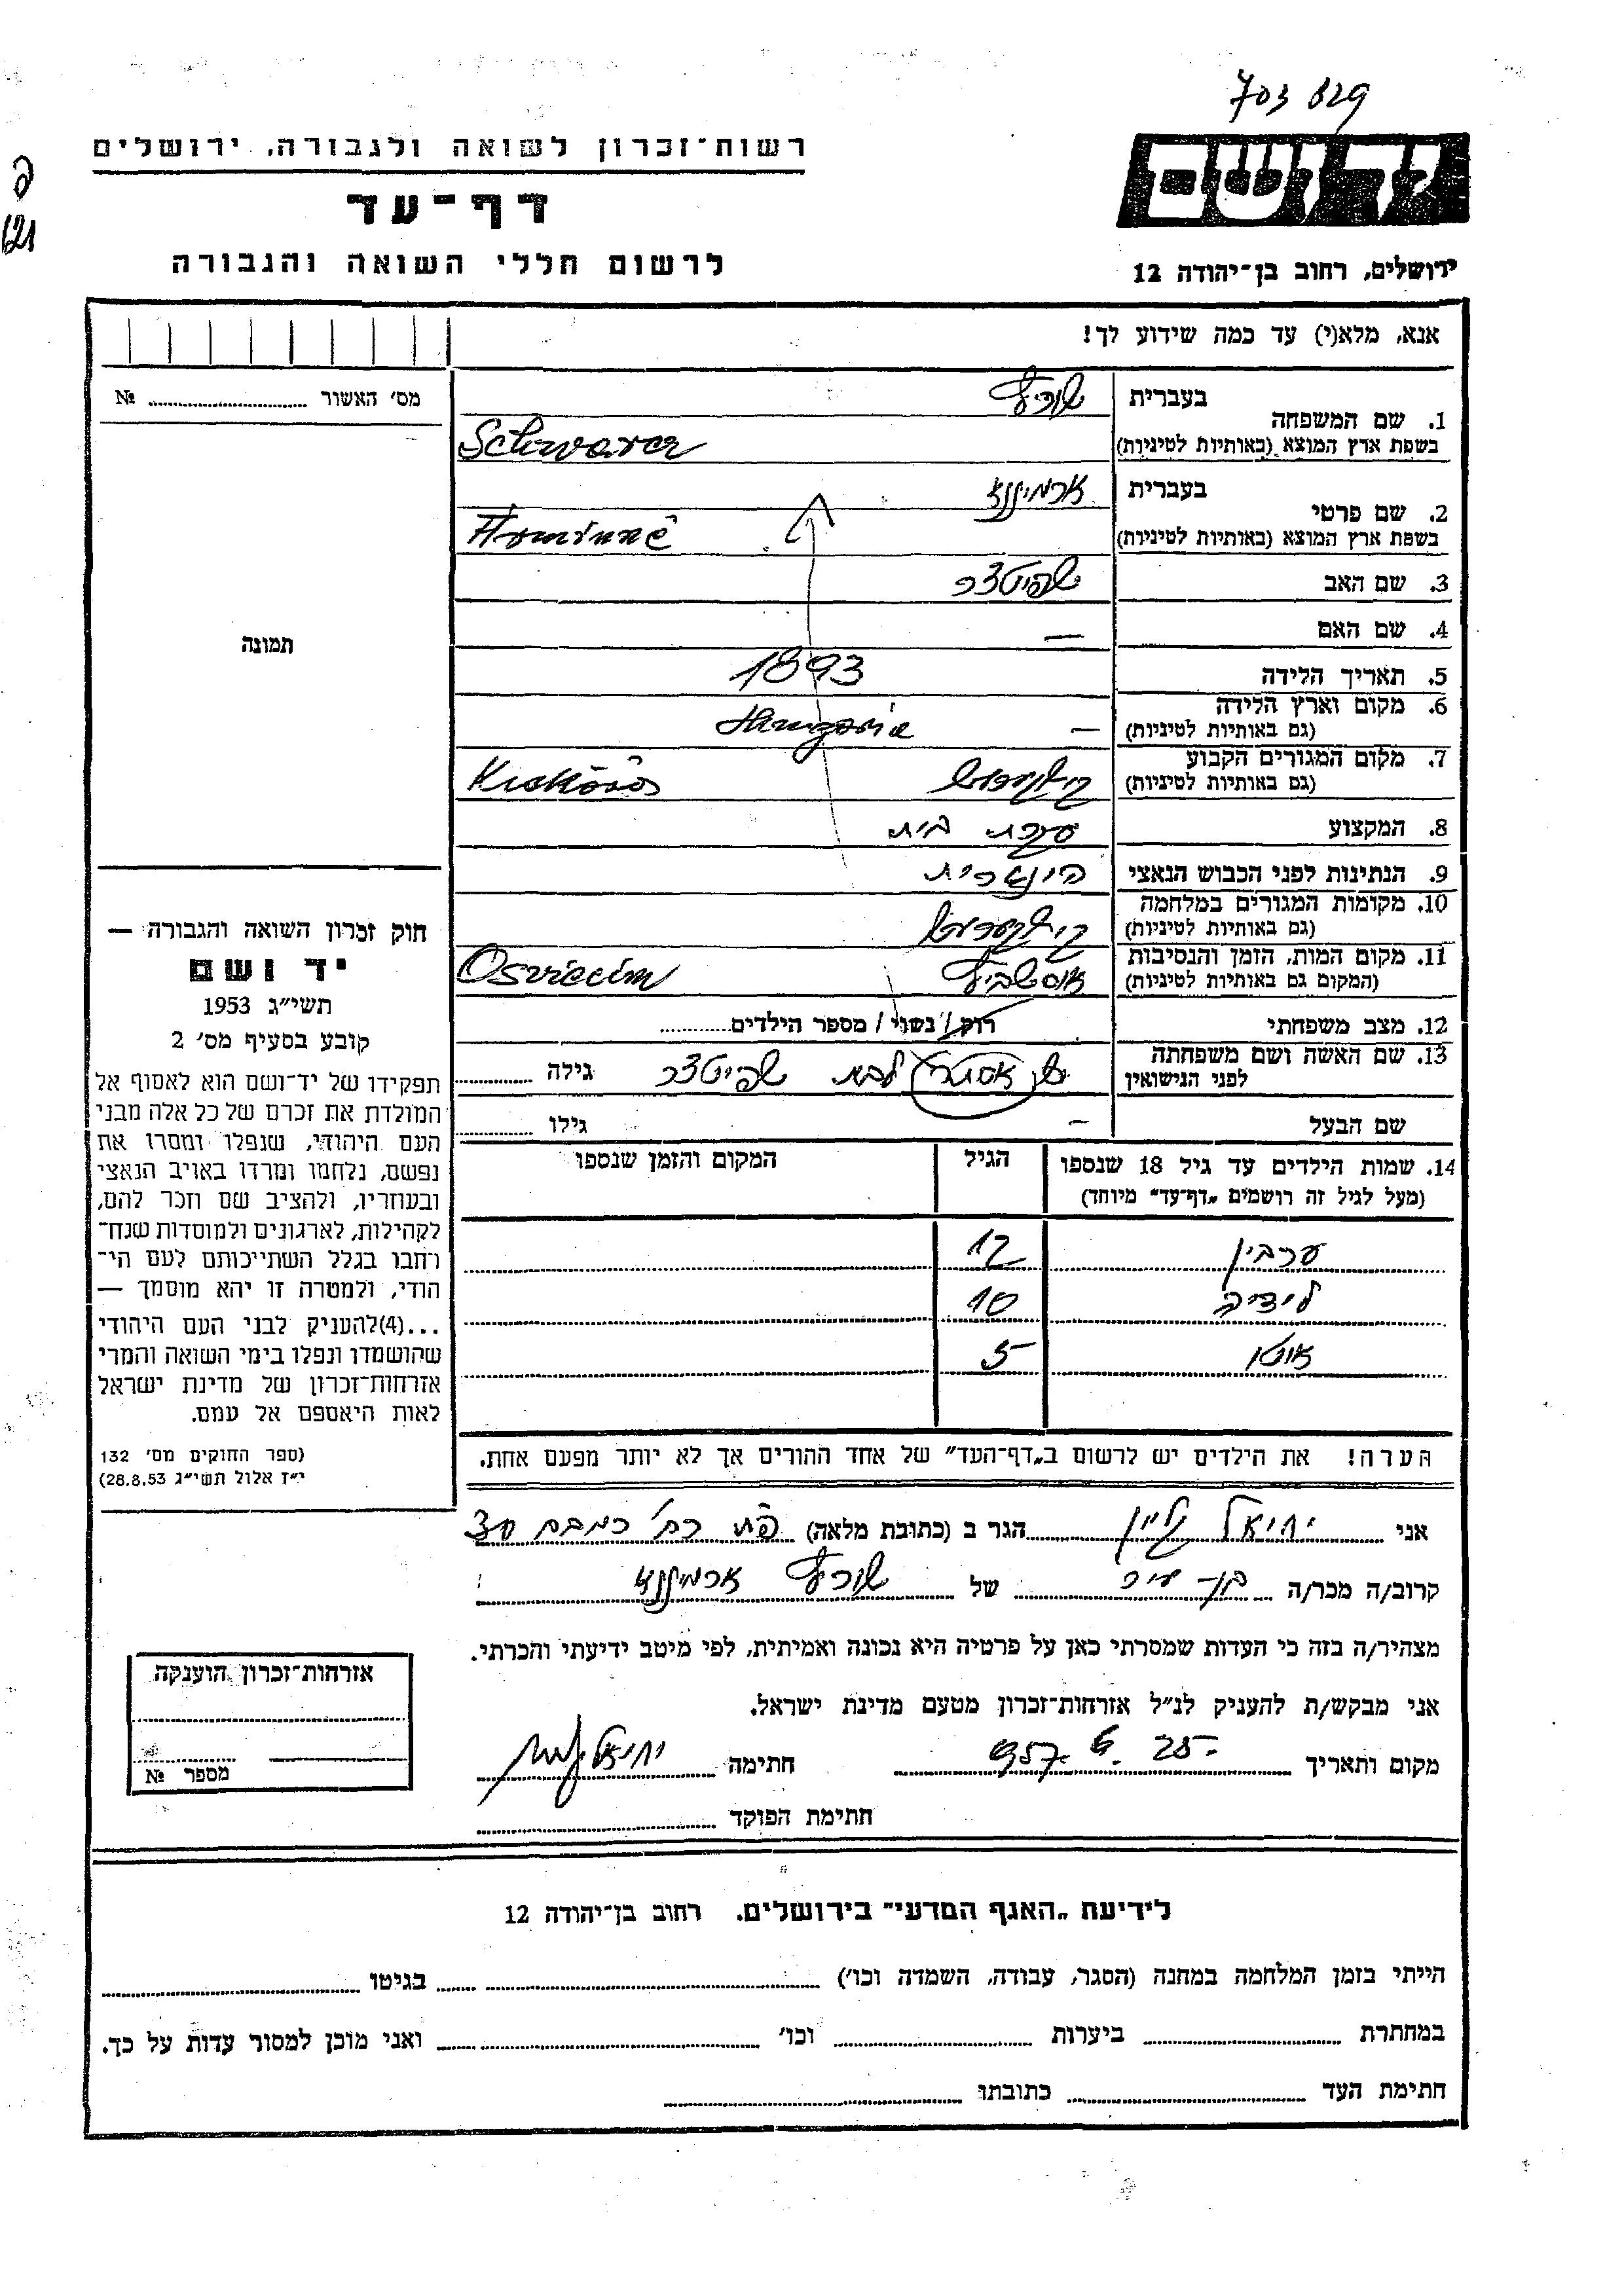 703 629
רשות־זכרון לשואה ולגבורה, ירושלים
יד ושם
דף־עד
לרשום חללי השואה והגבורה
ירושלים, רחוב בן־יהודה 12
אנא, מלא(י) עד כמה שידוע לך!
מס׳ האשור № 
1. שם המשפחה בעברית שורץ
בשפת ארץ המוצא (באותיות לטיניות) Schwarcz
2. שם פרטי בעברית ארמינא
בשפת ארץ המוצא (באותיות לטיניות)
3. שם האב שפיטצר
4. שם האם —
5. תאריך הלידה 1893
6. מקום וארץ הלידה
(גם באותיות לטיניות) — Hungaria
7. מקום המגורים הקבוע
(גם באותיות לטיניות) Kiskőrös
8. המקצוע עקרת בית
9. הנתינות לפני הכבוש הנאצי הונגרית
10. מקומות המגורים במלחמה
(גם באותיות לטיניות)
11. מקום המות, הזמן והנסיבות
(המקום גם באותיות לטיניות) Osviecim
12. מצב משפחתי רווק / נשוי / מספר הילדים
13. שם האשה ושם משפחתה
לפני הנישואין לבית שפיטצר גילה
שם הבעל — גילו
14. שמות הילדים עד גיל 18 שנספו הגיל המקום והזמן שנספו
(מעל לגיל זה רושמים „דף־עד״ מיוחד)
ערבין 12
10
אוטו 5
הערה! את הילדים יש לרשום ב„דף־העד״ של אחד ההורים אך לא יותר מפעם אחת.
תמונה
חוק זכרון השואה והגבורה —
יד ושם
תשי״ג 1953
קובע בסעיף מס׳ 2
תפקידו של יד־ושם הוא לאסוף אל
המולדת את זכרם של כל אלה מבני
העם היהודי, שנפלו ומסרו את
נפשם, נלחמו ומרדו באויב הנאצי
ובעוזריו, ולהציב שם וזכר להם,
לקהילות, לארגונים ולמוסדות שנח־
רחבו בגלל השתייכותם לעם הי־
הודי, ולמטרה זו יהא מוסמך —
...(4)להעניק לבני העם היהודי
שהושמדו ונפלו בימי השואה והמרי
אזרחות־זכרון של מדינת ישראל
לאות היאספם אל עמם.
(ספר החוקים מס׳ 132
י״ז אלול תשי״ג 28.8.53)
אני יחיאל הגר ב (כתובת מלאה)
קרוב/ה מכר/ה של שורץ ארמינא
מצהיר/ה בזה כי העדות שמסרתי כאן על פרטיה היא נכונה ואמיתית, לפי מיטב ידיעתי והכרתי.
אני מבקש/ת להעניק לנ״ל אזרחות־זכרון מטעם מדינת ישראל.
מקום ותאריך 25. 6. 957 חתימה
חתימת הפוקד
אזרחות־זכרון הוענקה
מספר №
לידיעת „האגף המדעי״ בירושלים. רחוב בן־יהודה 12
הייתי בזמן המלחמה במחנה (הסגר, עבודה, השמדה וכו׳) בגיטו
במחתרת ביערות וכו׳ ואני מוכן למסור עדות על כך.
חתימת העד כתובתו